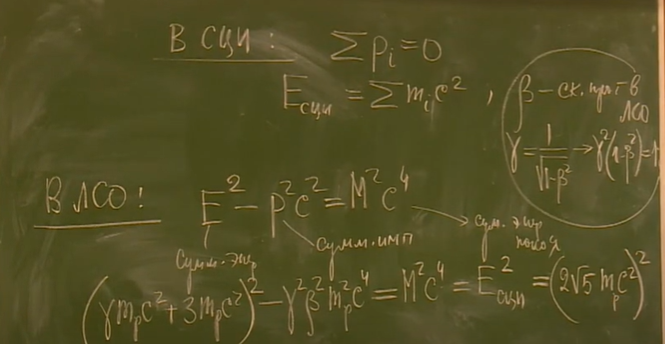 В СЦИ: ∑ pᵢ = 0
E_сци = ∑ mᵢc² ,
β – ск. прот в
ЛСО
γ = 1/√(1-β²) → γ²(1-β²) = 1
В ЛСО! E² - p²c² = M²c⁴
сумм. энр
сумм. имп
сум. энр
покоя
(γm_pc² + 3m_pc²)² - γ²β²m_p²c⁴ = M²c⁴ = E²_сци = (2√5 m_pc²)²